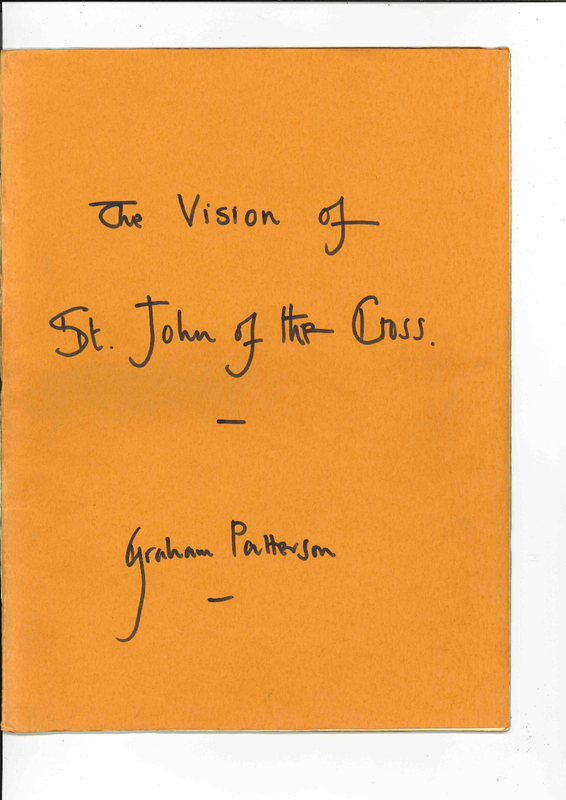 The Vision of
St. John of the Cross.
—
Graham Patterson
—